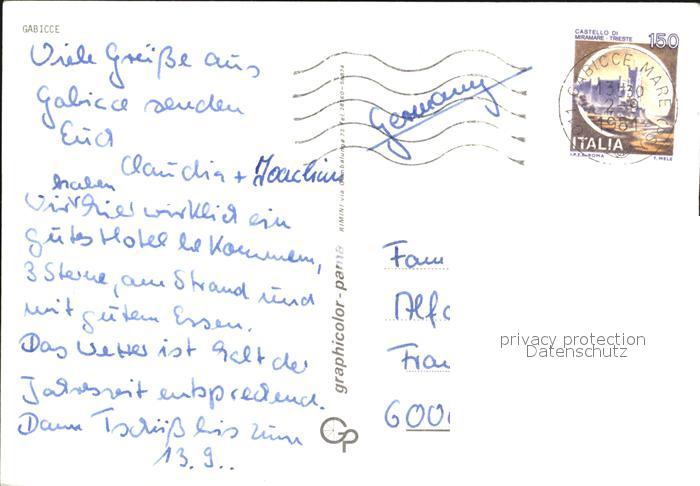 GABICCE
Viele Grüße aus
Gabicce senden
Euch
Claudia + Joachim
haben
Wir hier wirklich ein
gutes Hotel bekommen,
3 Sterne, am Strand und
mit gutem Essen.
Das Wetter ist halt der
Jahreszeit entsprechend.
Dann Tschüß bis zum
13.9..
graphicolor - pama
RIMINI
GP
Germany
CASTELLO DI
MIRAMARE - TRIESTE
150
GABICCE MARE
13-30
2-9
1981
ITALIA
I.P.Z.S. ROMA
T. MELE
Fam
Alfo
Fran
6000
privacy protection
Datenschutz